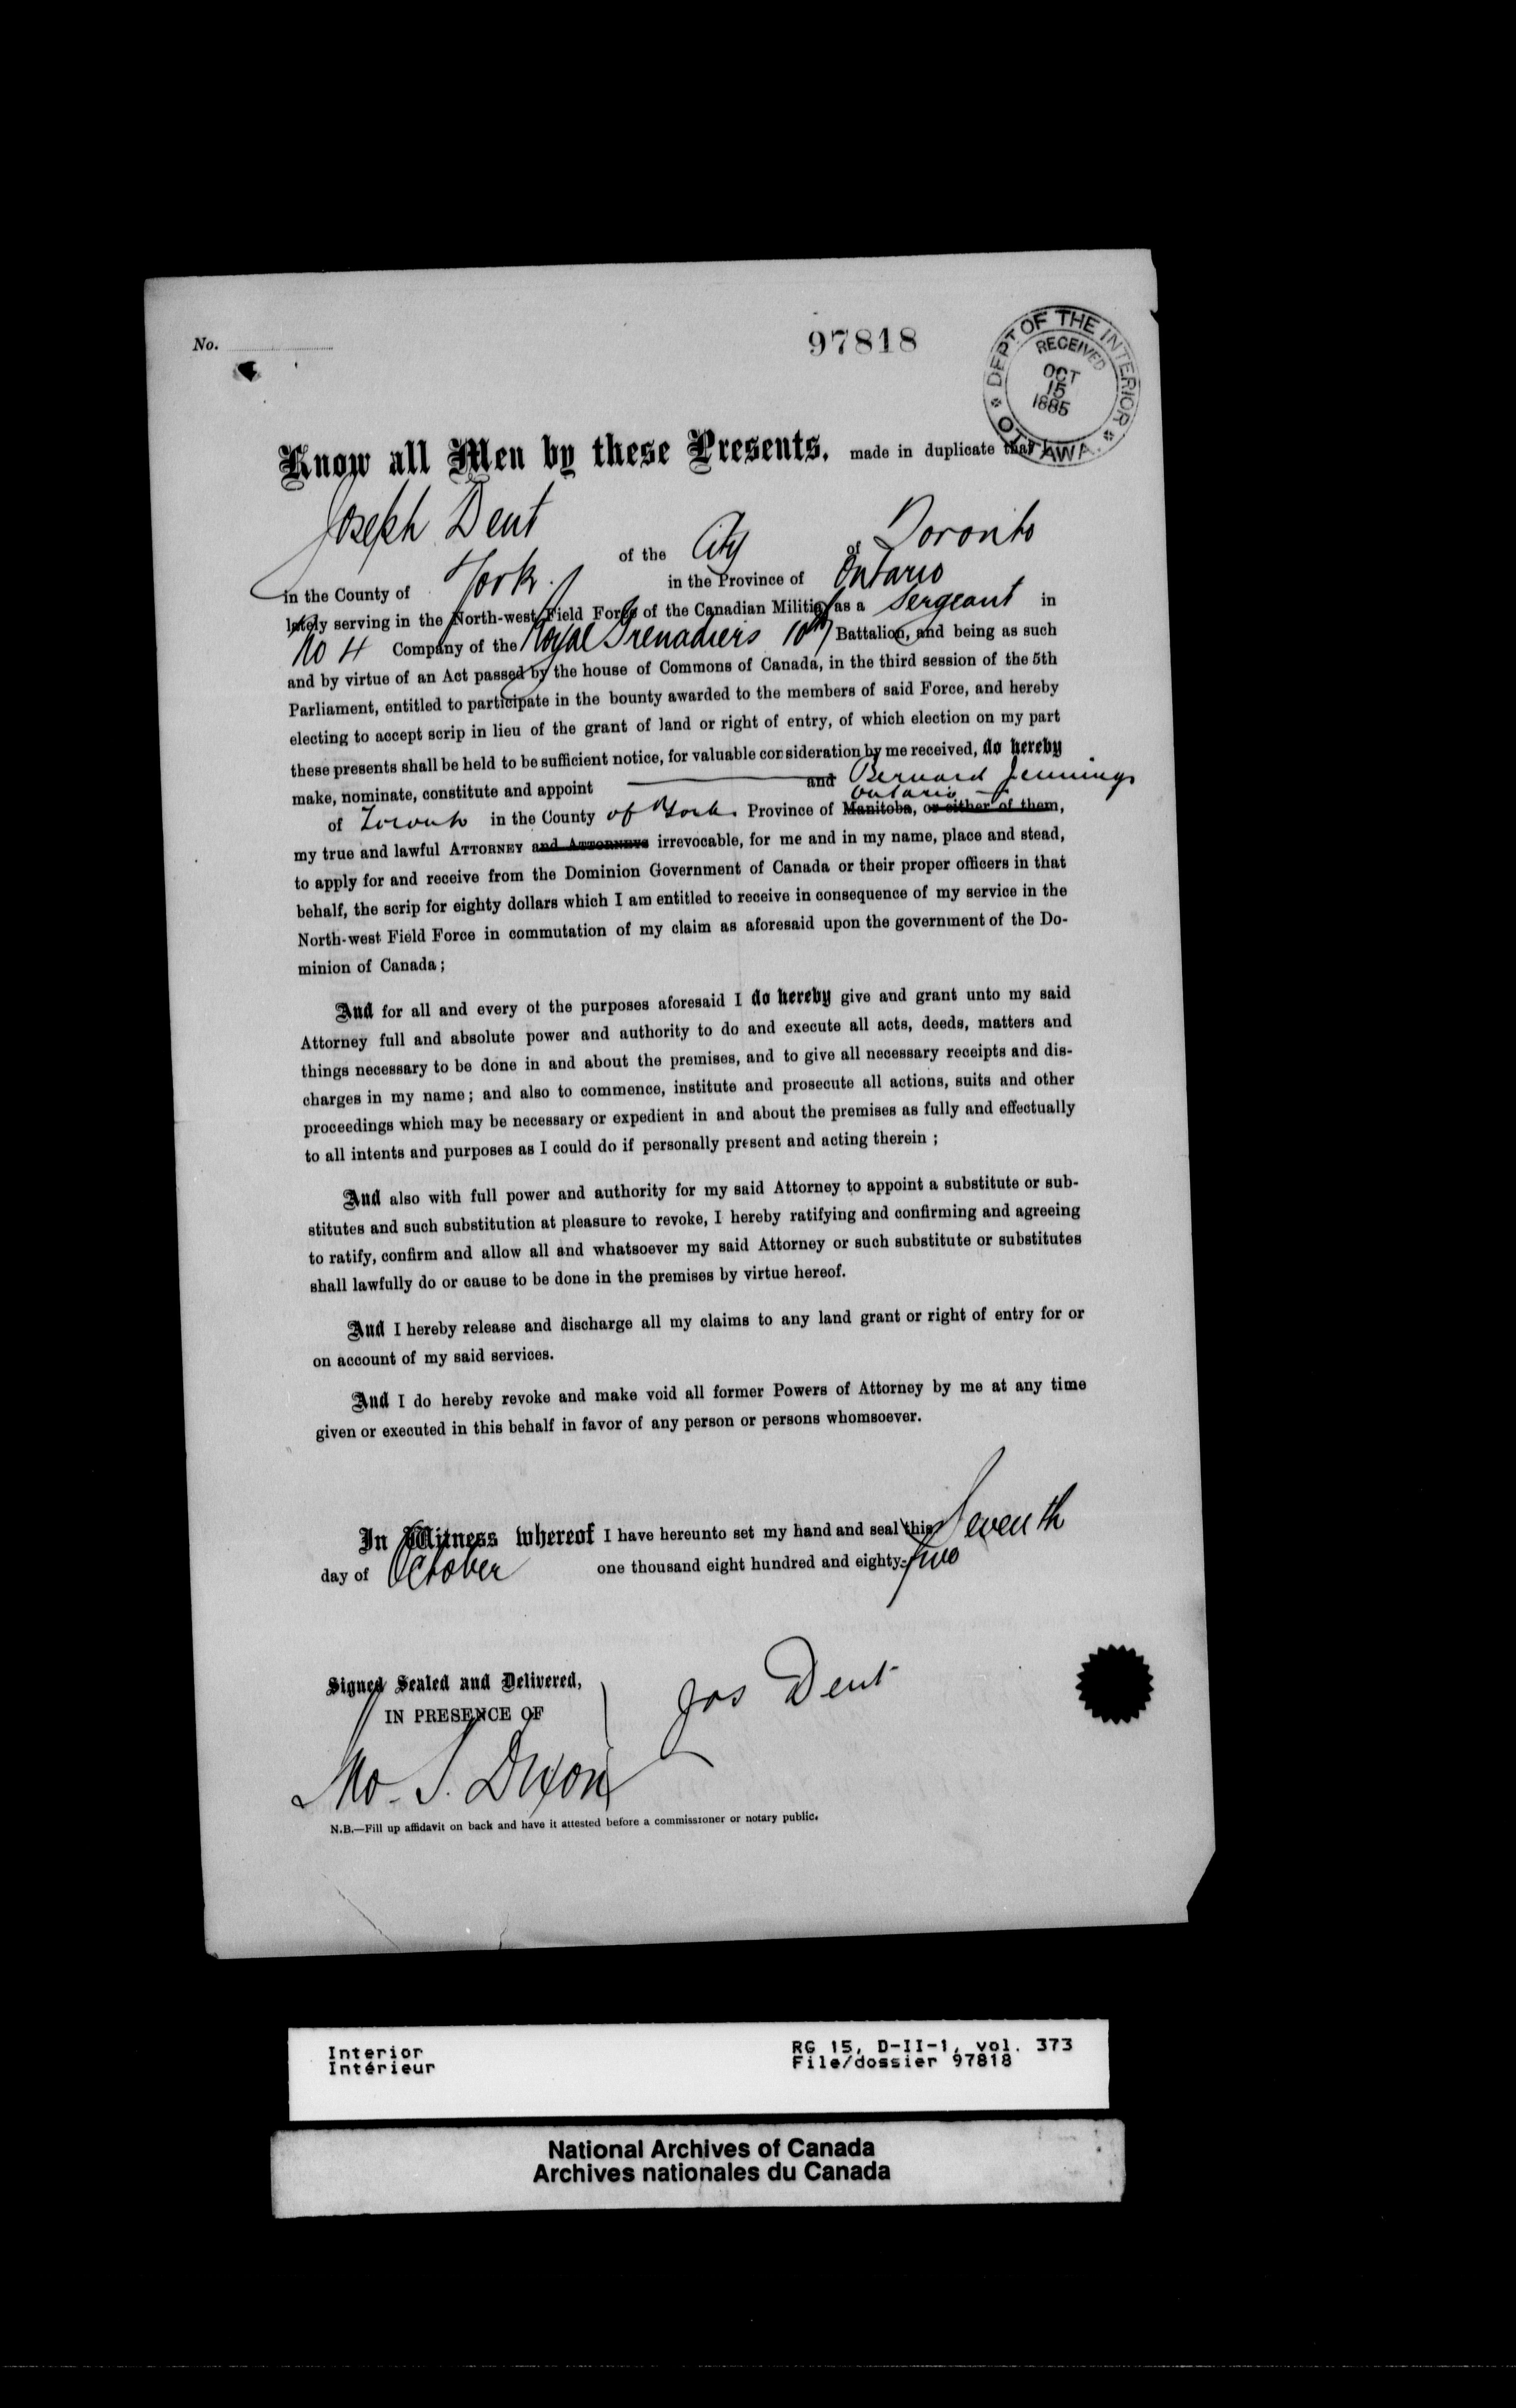 No.
97818
DEPT. OF THE INTERIOR
RECEIVED
OCT
15
1885
OTTAWA
Know all Men by these Presents, made in duplicate that I
Joseph Dent of the City of Toronto
in the County of York in the Province of Ontario
lately serving in the North-west Field Force of the Canadian Militia, as a Sergeant in
No 4 Company of the Royal Grenadiers 10th Battalion, and being as such
and by virtue of an Act passed by the house of Commons of Canada, in the third session of the 5th
Parliament, entitled to participate in the bounty awarded to the members of said Force, and hereby
electing to accept scrip in lieu of the grant of land or right of entry, of which election on my part
these presents shall be held to be sufficient notice, for valuable consideration by me received, do hereby
make, nominate, constitute and appoint and Bernard Jennings
of Toronto in the County of York Province of Manitoba, Ontario or either of them,
my true and lawful ATTORNEY and ATTORNEYS irrevocable, for me and in my name, place and stead,
to apply for and receive from the Dominion Government of Canada or their proper officers in that
behalf, the scrip for eighty dollars which I am entitled to receive in consequence of my service in the
North-west Field Force in commutation of my claim as aforesaid upon the government of the Do-
minion of Canada;
And for all and every of the purposes aforesaid I do hereby give and grant unto my said
Attorney full and absolute power and authority to do and execute all acts, deeds, matters and
things necessary to be done in and about the premises, and to give all necessary receipts and dis-
charges in my name; and also to commence, institute and prosecute all actions, suits and other
proceedings which may be necessary or expedient in and about the premises as fully and effectually
to all intents and purposes as I could do if personally present and acting therein ;
And also with full power and authority for my said Attorney to appoint a substitute or sub-
stitutes and such substitution at pleasure to revoke, I hereby ratifying and confirming and agreeing
to ratify, confirm and allow all and whatsoever my said Attorney or such substitute or substitutes
shall lawfully do or cause to be done in the premises by virtue hereof.
And I hereby release and discharge all my claims to any land grant or right of entry for or
on account of my said services.
And I do hereby revoke and make void all former Powers of Attorney by me at any time
given or executed in this behalf in favor of any person or persons whomsoever.
In Witness whereof I have hereunto set my hand and seal this Seventh
day of October one thousand eight hundred and eighty-five
Signed Sealed and Delivered,
IN PRESENCE OF
Jos Dent
S. Dixon
N.B.—Fill up affidavit on back and have it attested before a commissioner or notary public.
Interior RG 15, D-II-1, vol. 373
Intérieur File/dossier 97818
National Archives of Canada
Archives nationales du Canada